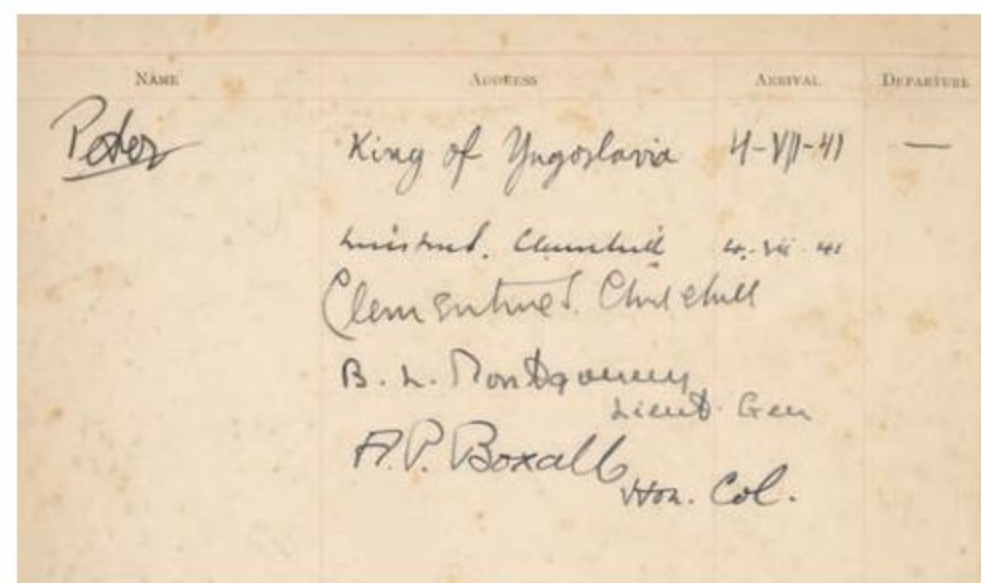 NAME ADDRESS ARRIVAL DEPARTURE
Peter King of Yugoslavia 4-VII-41 —
Winston S. Churchill 4. vii. 41
Clementine S. Churchill
B. L. Montgomery
Lieut. Gen
A.P. Boxall
Hon. Col.